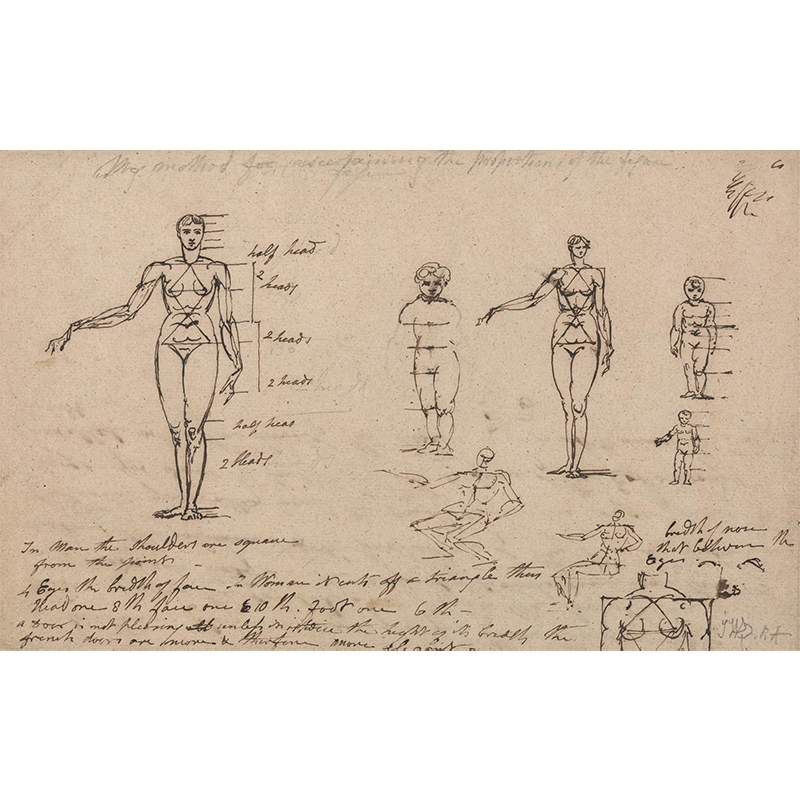 My method for ascertaining the proportions of the figure
half head
2 heads
2 heads
2 heads
half head
2 Heads
In Man the Shoulders are square
from the point
bredth of nose
that between the
Eyes
4 Eyes the bredth of face in Woman it cuts off a triangle thus
Head one 8th face one 10th. foot one 6th
a Door is not pleasing unless twice the height of its bredth the
french doors are more & therefore more